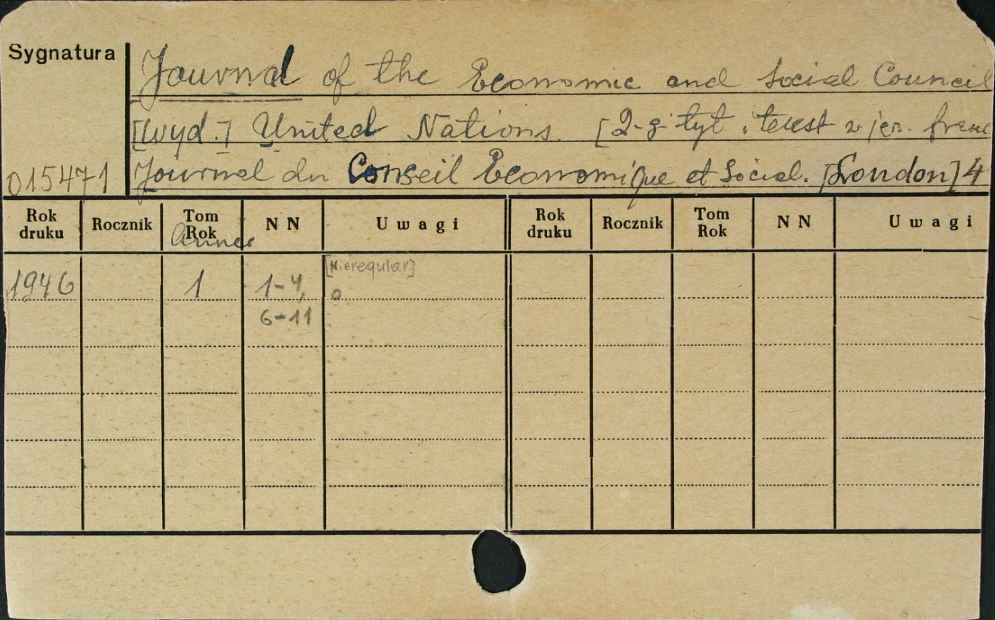 Sygnatura
Journal of the Economic and Social Council
[Wyd.] United Nations. [2-gi tyt. i tekst w jęz. franc.
015471 Journal du Conseil Economique et Social. [London] 4
Rok druku Rocznik Tom Rok N N Uwagi Rok druku Rocznik Tom Rok N N Uwagi
Année
[Nieregular]
1946 1 1-4, 0
6-11